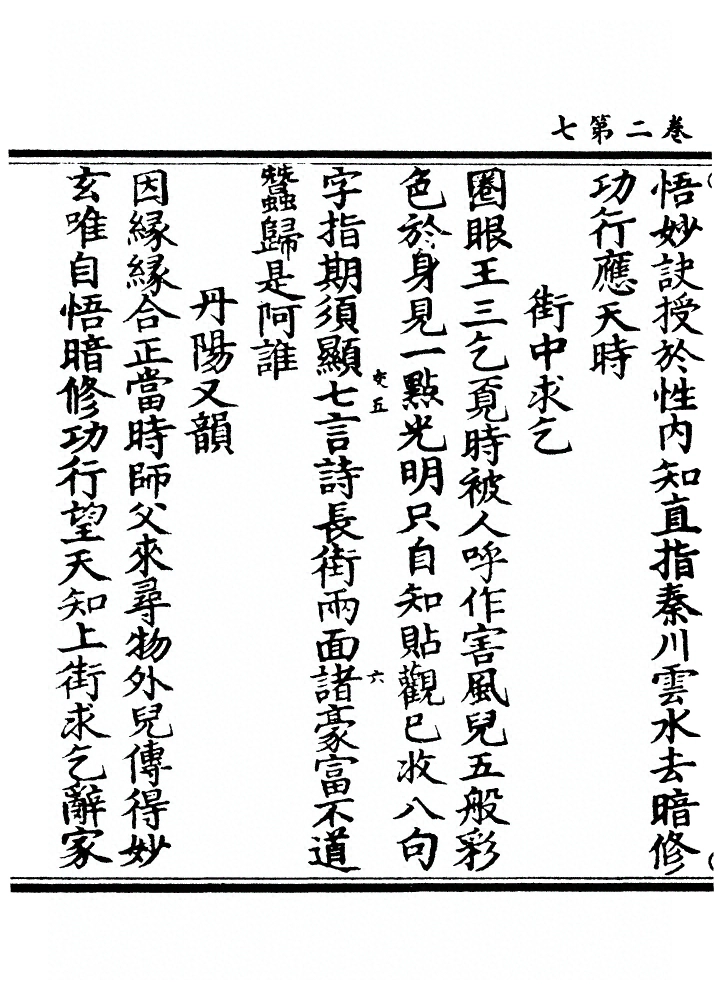 卷二第七
悟妙訣授於性内知直指秦川雲水去暗修
功行應天時
街中求乞
圈眼王三乞覔時被人呼作害風兒五般彩
色於身見一點光明只自知貼觀已收八句
字指期須顯七言詩長街兩面諸豪富不道
交五
六
蠶歸是阿誰
丹陽又韻
因緣緣合正當時師父來尋物外兒傳得妙
玄唯自悟暗修功行望天知上街求乞辭家